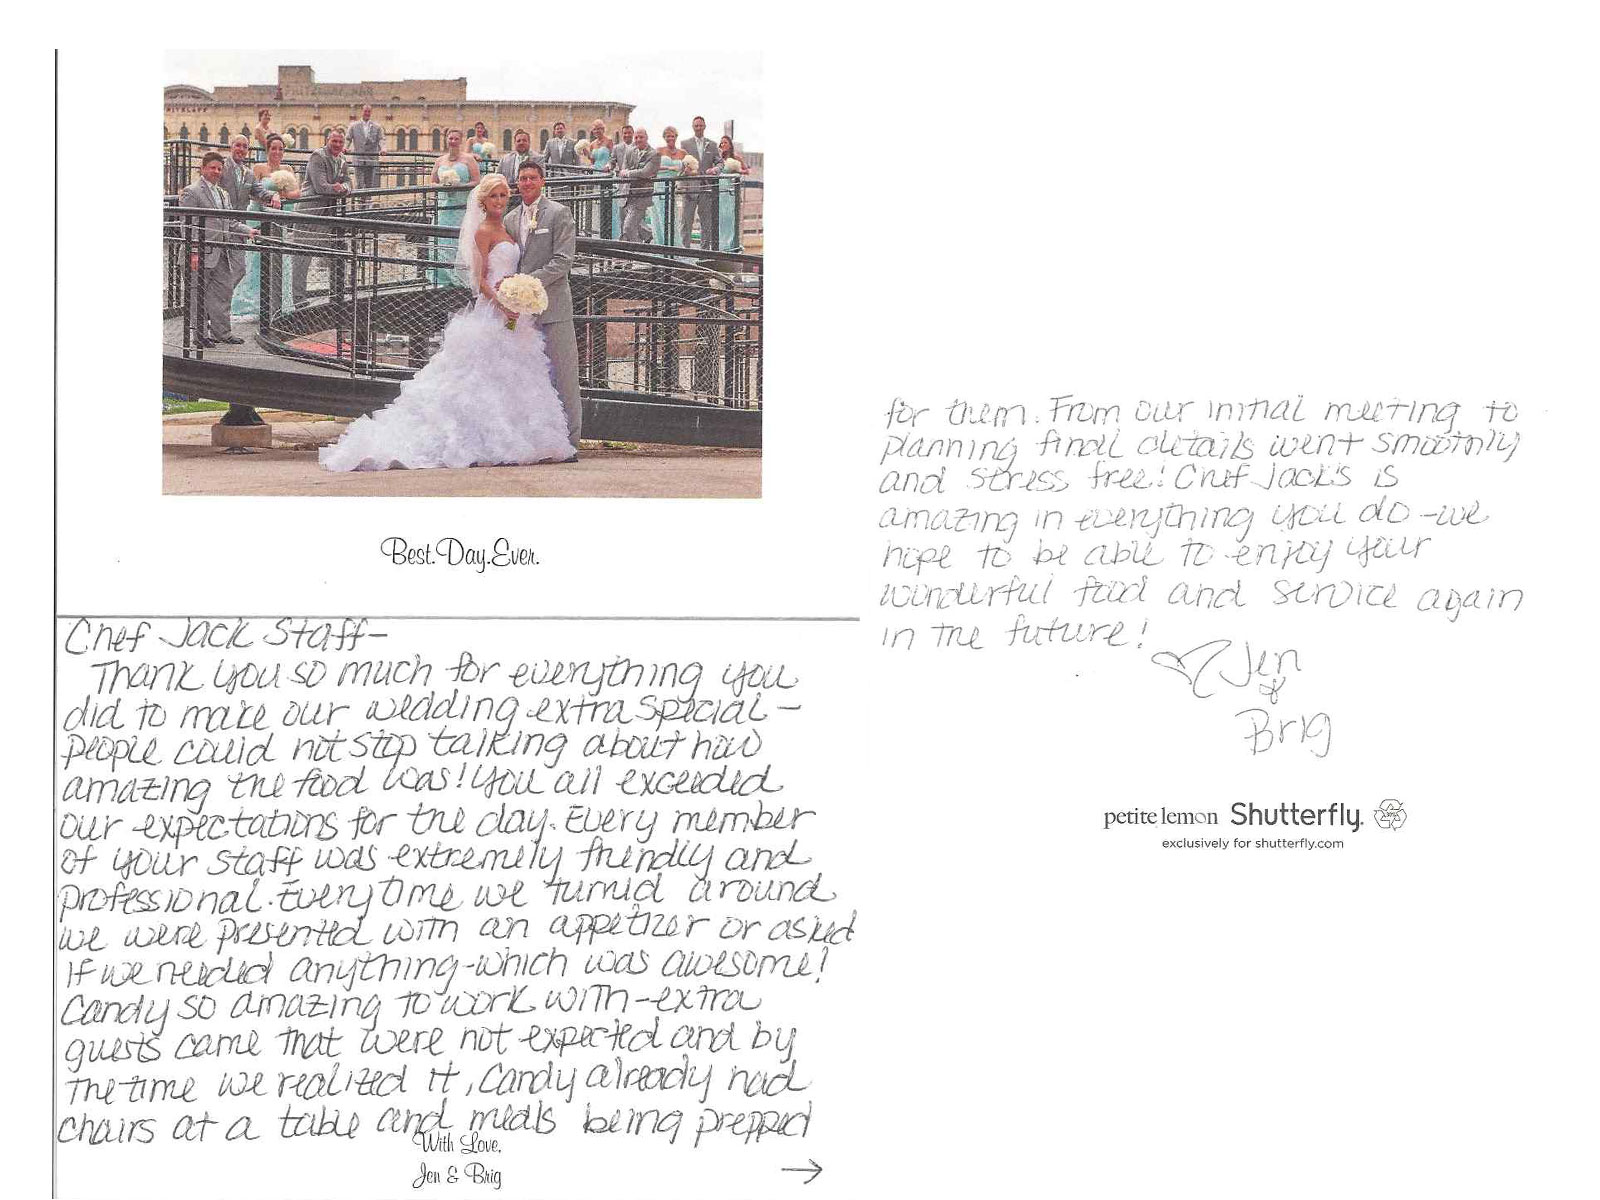 Best.Day.Ever.
Chef Jack Staff-
Thank you so much for everything you
did to make our wedding extra special-
people could not stop talking about how
amazing the food was! You all exceeded
our expectations for the day. Every member
of your staff was extremely friendly and
professional. Everytime we turned around
we were presented with an appetizer or asked
if we needed anything-which was awesome!
Candy so amazing to work with-extra
guests came that were not expected and by
the time we realized it, Candy already had
chairs at a table and meals being prepped
With Love,
Jen & Brig
for them. From our initial meeting to
planning final details went smoothly
and stress free! Chef Jack's is
amazing in everything you do-we
hope to be able to enjoy your
wonderful food and service again
in the future!
Jen
&
Brig
petite lemon Shutterfly.
exclusively for shutterfly.com